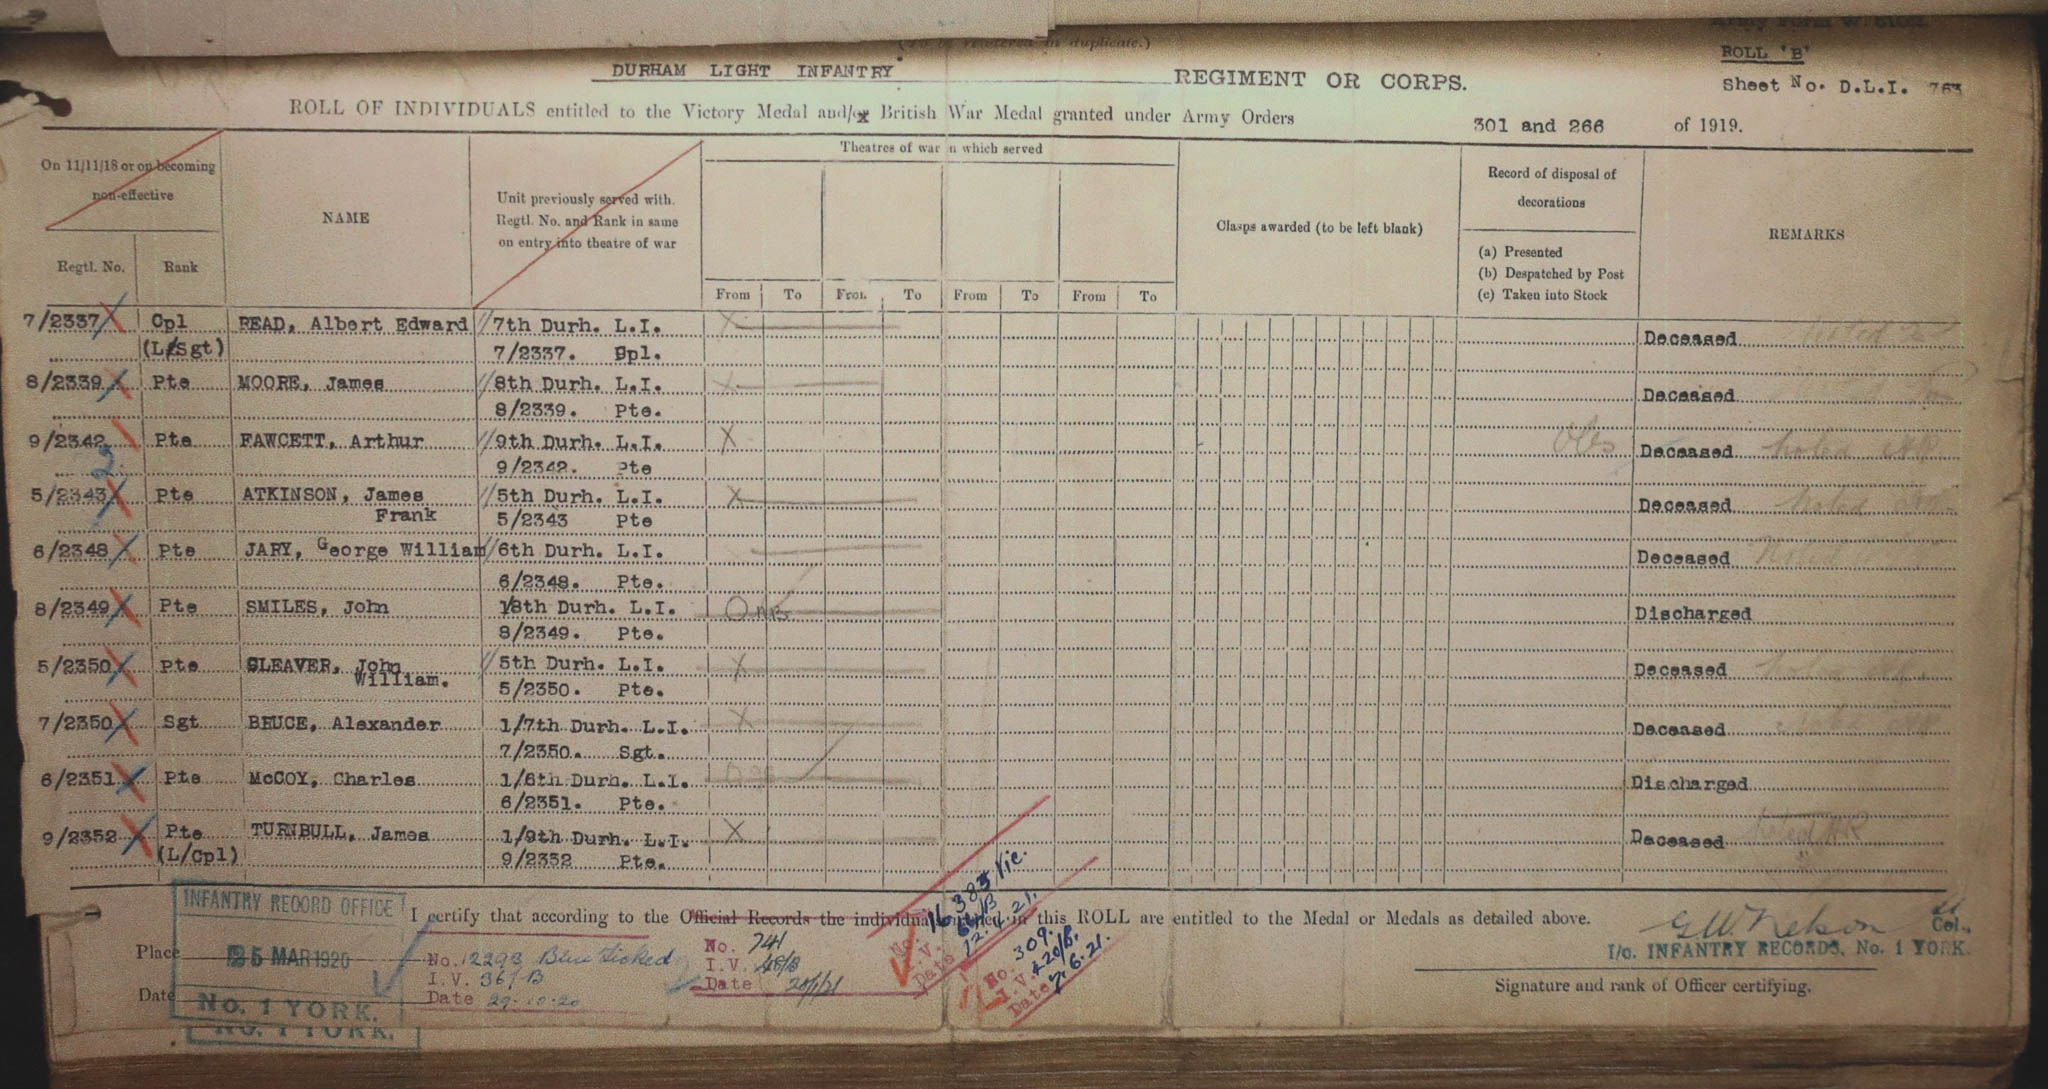 (To be rendered in duplicate.)
ROLL 'B'
DURHAM LIGHT INFANTRY REGIMENT OR CORPS.
Sheet No. D.L.I. 763
ROLL OF INDIVIDUALS entitled to the Victory Medal and/or British War Medal granted under Army Orders 301 and 266 of 1919.
On 11/11/18 or on becoming non-effective
Regtl. No. Rank
NAME
Unit previously served with. Regtl. No. and Rank in same on entry into theatre of war
Theatres of war in which served
From To From To From To From To
Clasps awarded (to be left blank)
Record of disposal of decorations
(a) Presented
(b) Despatched by Post
(c) Taken into Stock
REMARKS
7/2337 Cpl READ, Albert Edward 7th Durh. L.I. X Deceased
(L/Sgt) 7/2337. Cpl.
8/2339 Pte MOORE, James 8th Durh. L.I. X Deceased
8/2339. Pte.
9/2342 Pte FAWCETT, Arthur 9th Durh. L.I. X Deceased Noted
9/2342. Pte
5/2343 Pte ATKINSON, James 5th Durh. L.I. X Deceased Noted
Frank 5/2343 Pte
6/2348 Pte JARY, George William 6th Durh. L.I. Deceased Noted
6/2348. Pte.
8/2349 Pte SMILES, John 18th Durh. L.I. Discharged
8/2349. Pte.
5/2350 Pte CLEAVER, John 5th Durh. L.I. X Deceased Noted
William. 5/2350. Pte.
7/2350 Sgt BRUCE, Alexander 1/7th Durh. L.I. X Deceased Noted
7/2350. Sgt.
6/2351 Pte McCOY, Charles 1/6th Durh. L.I. Discharged
6/2351. Pte.
9/2352 Pte TURNBULL, James 1/9th Durh. L.I. X Deceased Noted
(L/Cpl) 9/2352 Pte.
I certify that according to the Official Records the individuals named in this ROLL are entitled to the Medal or Medals as detailed above.
INFANTRY RECORD OFFICE
Place
25 MAR 1920
Date
No. 1 YORK.
No. 1 YORK.
No. 12293 Blue ticked
I.V. 361/B
Date 29.10.20
No. 741
I.V. 48/B
Date 20/1/21
No. 16383 Vic.
I.V.
Date 12.4.21.
No. 309.
I.V. 420/B.
Date 7.6.21.
G.W. Nelson Col.,
I/c. INFANTRY RECORDS, No. 1 YORK.
Signature and rank of Officer certifying.